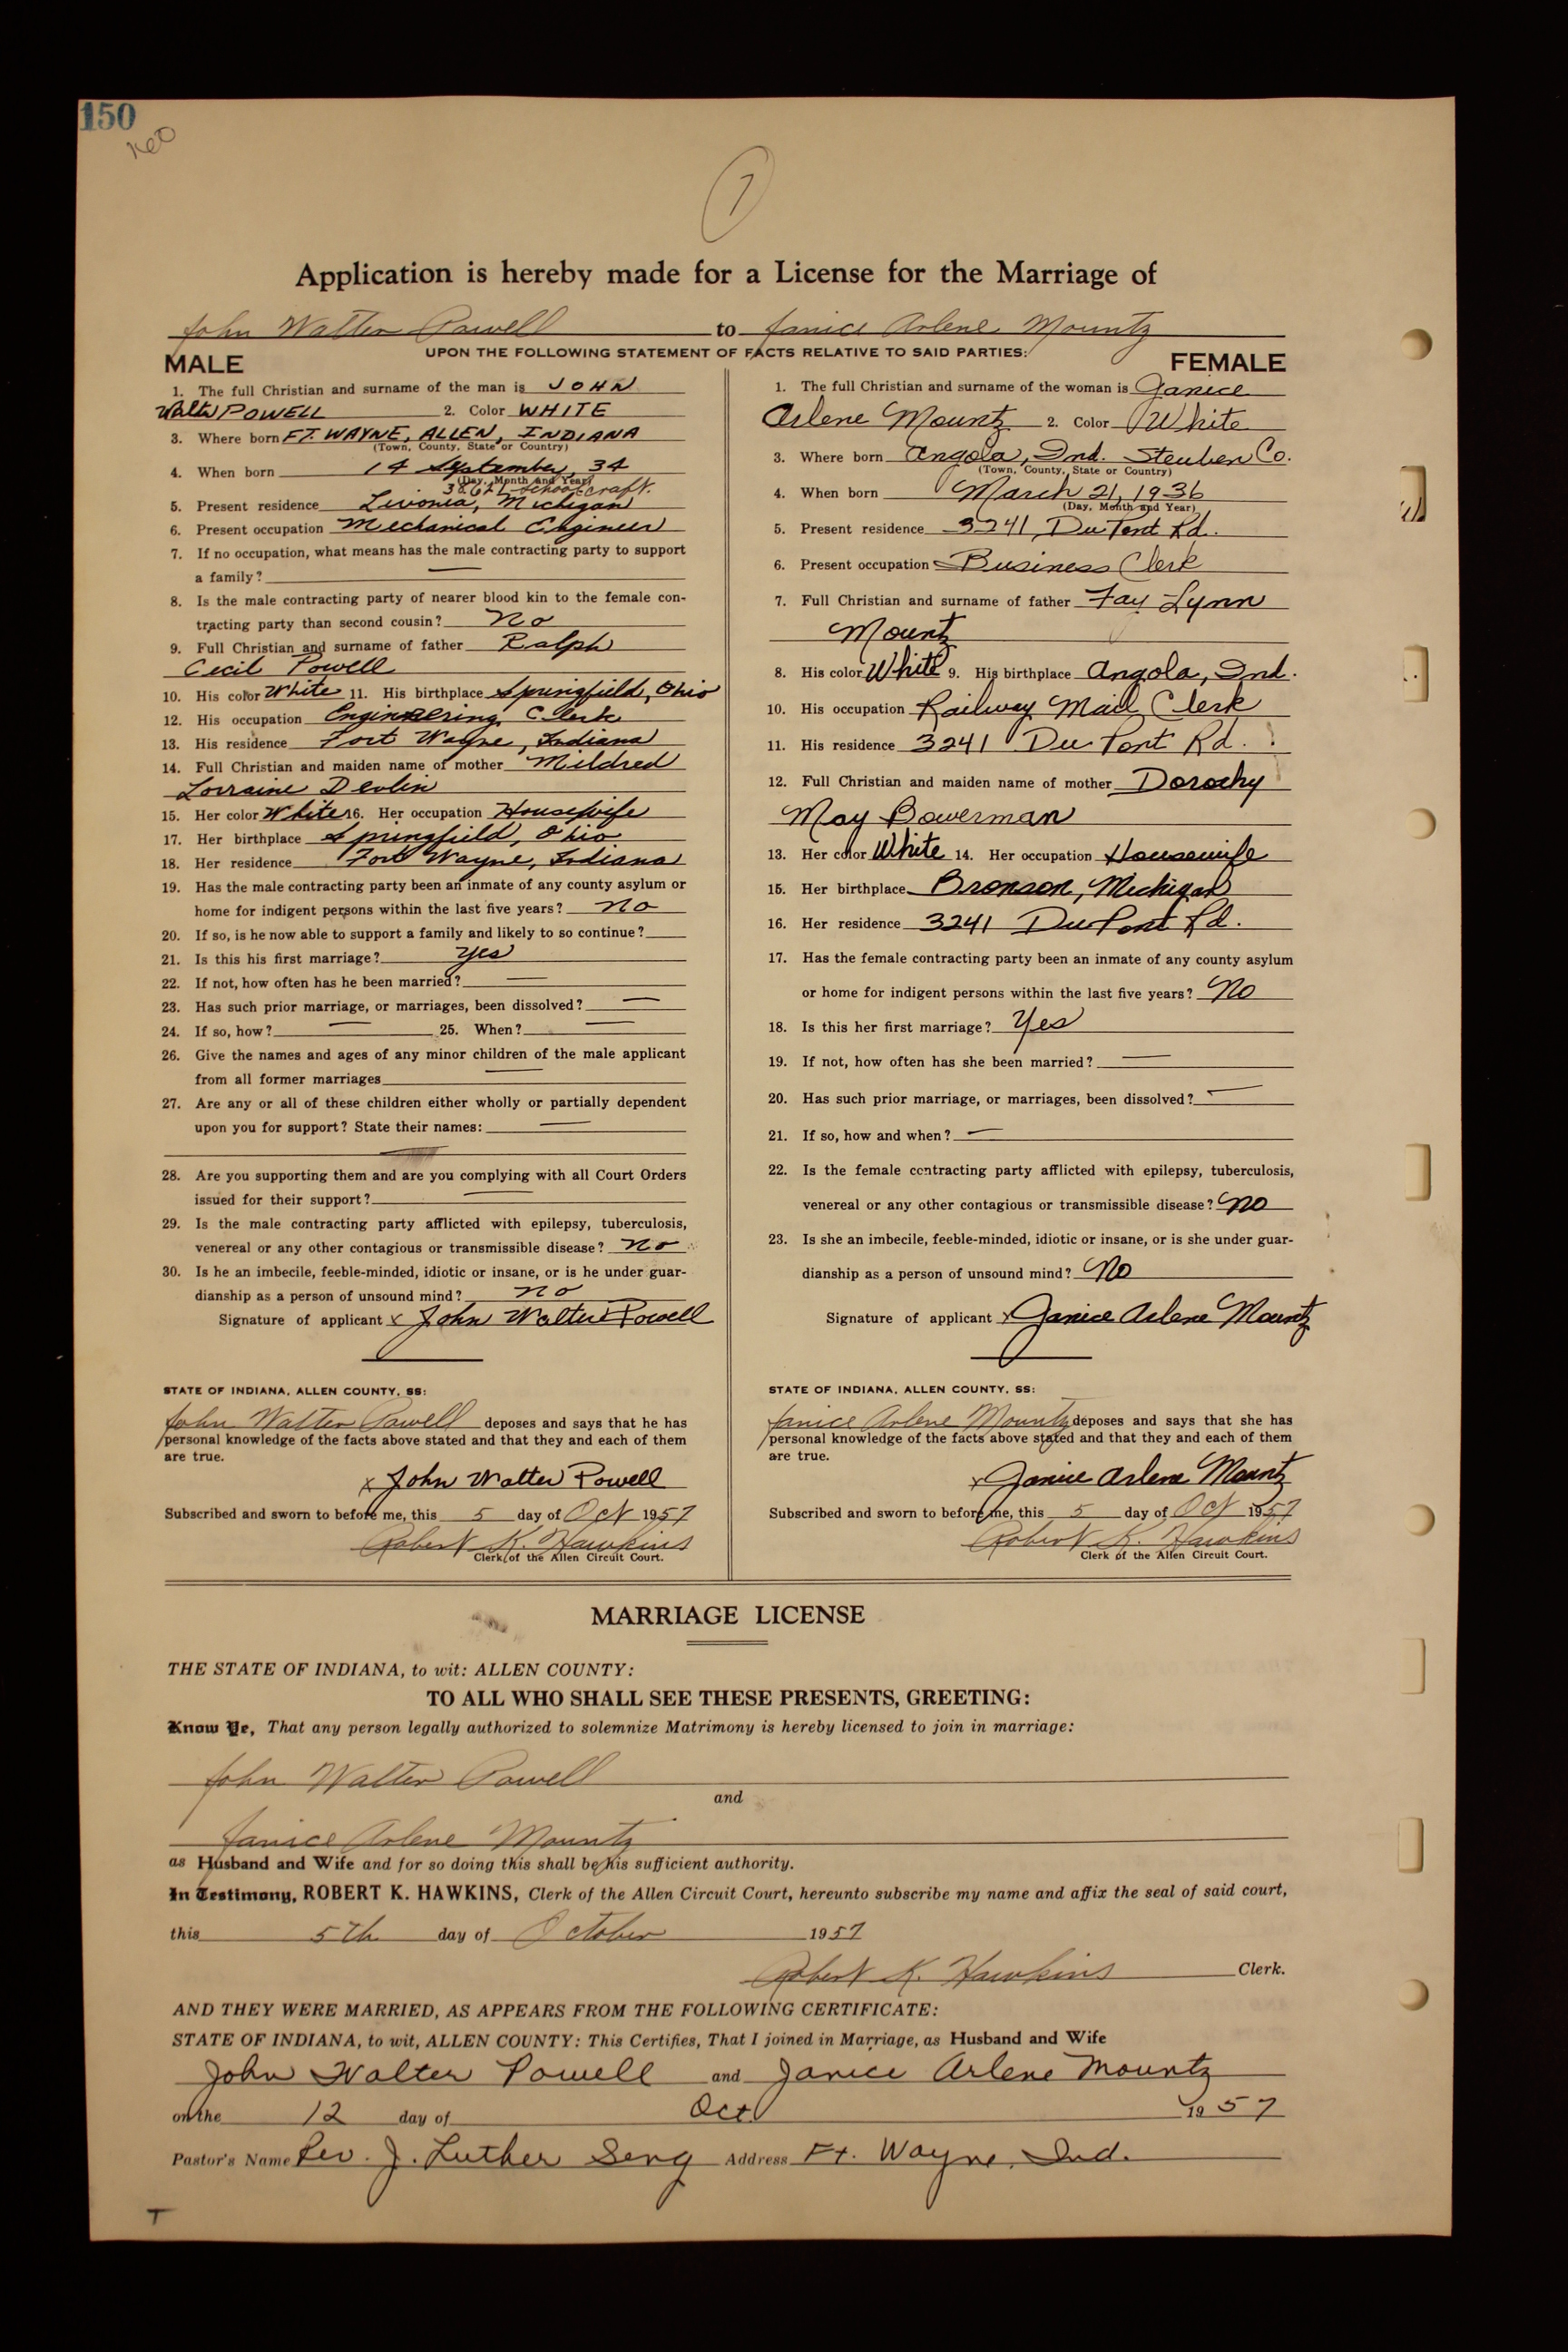 150
7
Application is hereby made for a License for the Marriage of
John Walter Powell to Janice Arlene Mountz
UPON THE FOLLOWING STATEMENT OF FACTS RELATIVE TO SAID PARTIES:
MALE
1. The full Christian and surname of the man is JOHN
Walter POWELL 2. Color WHITE
3. Where born FT. WAYNE, ALLEN, INDIANA
(Town, County, State or Country)
4. When born 14 September, 34
(Day, Month and Year)
Schoolcraft.
5. Present residence Livonia, Michigan
6. Present occupation Mechanical Engineer
7. If no occupation, what means has the male contracting party to support
a family? —
8. Is the male contracting party of nearer blood kin to the female con-
tracting party than second cousin? No
9. Full Christian and surname of father Ralph
Cecil Powell
10. His color White 11. His birthplace Springfield, Ohio
12. His occupation Engineering Clerk
13. His residence Fort Wayne, Indiana
14. Full Christian and maiden name of mother Mildred
Lorraine Devlin
15. Her color White 16. Her occupation Housewife
17. Her birthplace Springfield, Ohio
18. Her residence Fort Wayne, Indiana
19. Has the male contracting party been an inmate of any county asylum or
home for indigent persons within the last five years? no
20. If so, is he now able to support a family and likely to so continue?
21. Is this his first marriage? yes
22. If not, how often has he been married? —
23. Has such prior marriage, or marriages, been dissolved? —
24. If so, how? — 25. When? —
26. Give the names and ages of any minor children of the male applicant
from all former marriages —
27. Are any or all of these children either wholly or partially dependent
upon you for support? State their names: —
28. Are you supporting them and are you complying with all Court Orders
issued for their support? —
29. Is the male contracting party afflicted with epilepsy, tuberculosis,
venereal or any other contagious or transmissible disease? no
30. Is he an imbecile, feeble-minded, idiotic or insane, or is he under guar-
dianship as a person of unsound mind? no
Signature of applicant x John Walter Powell
STATE OF INDIANA, ALLEN COUNTY, SS:
John Walter Powell deposes and says that he has
personal knowledge of the facts above stated and that they and each of them
are true.
x John Walter Powell
Subscribed and sworn to before me, this 5 day of Oct 1957
Robert K. Hawkins
Clerk of the Allen Circuit Court.
FEMALE
1. The full Christian and surname of the woman is Janice
Arlene Mountz 2. Color White
3. Where born Angola, Ind. Steuben Co.
(Town, County, State or Country)
4. When born March 21, 1936
(Day, Month and Year)
5. Present residence 3241 Du Pont Rd.
6. Present occupation Business Clerk
7. Full Christian and surname of father Fay Lynn
Mountz
8. His color White 9. His birthplace Angola, Ind.
10. His occupation Railway Mail Clerk
11. His residence 3241 Du Pont Rd.
12. Full Christian and maiden name of mother Dorothy
May Bowerman
13. Her color White 14. Her occupation Housewife
15. Her birthplace Bronson, Michigan
16. Her residence 3241 Du Pont Rd.
17. Has the female contracting party been an inmate of any county asylum
or home for indigent persons within the last five years? No
18. Is this her first marriage? Yes
19. If not, how often has she been married? —
20. Has such prior marriage, or marriages, been dissolved? —
21. If so, how and when? —
22. Is the female contracting party afflicted with epilepsy, tuberculosis,
venereal or any other contagious or transmissible disease? No
23. Is she an imbecile, feeble-minded, idiotic or insane, or is she under guar-
dianship as a person of unsound mind? No
Signature of applicant x Janice Arlene Mountz
STATE OF INDIANA, ALLEN COUNTY, SS:
Janice Arlene Mountz deposes and says that she has
personal knowledge of the facts above stated and that they and each of them
are true.
x Janice Arlene Mountz
Subscribed and sworn to before me, this 5 day of Oct 1957
Robert K. Hawkins
Clerk of the Allen Circuit Court.
MARRIAGE LICENSE
THE STATE OF INDIANA, to wit: ALLEN COUNTY:
TO ALL WHO SHALL SEE THESE PRESENTS, GREETING:
Know Ye, That any person legally authorized to solemnize Matrimony is hereby licensed to join in marriage:
John Walter Powell
and
Janice Arlene Mountz
as Husband and Wife and for so doing this shall be his sufficient authority.
In Testimony, ROBERT K. HAWKINS, Clerk of the Allen Circuit Court, hereunto subscribe my name and affix the seal of said court,
this 5th day of October 1957
Robert K. Hawkins Clerk.
AND THEY WERE MARRIED, AS APPEARS FROM THE FOLLOWING CERTIFICATE:
STATE OF INDIANA, to wit, ALLEN COUNTY: This Certifies, That I joined in Marriage, as Husband and Wife
John Walter Powell and Janice Arlene Mountz
on the 12 day of Oct 1957
Pastor's Name Rev. J. Luther Seng Address Ft. Wayne, Ind.
T